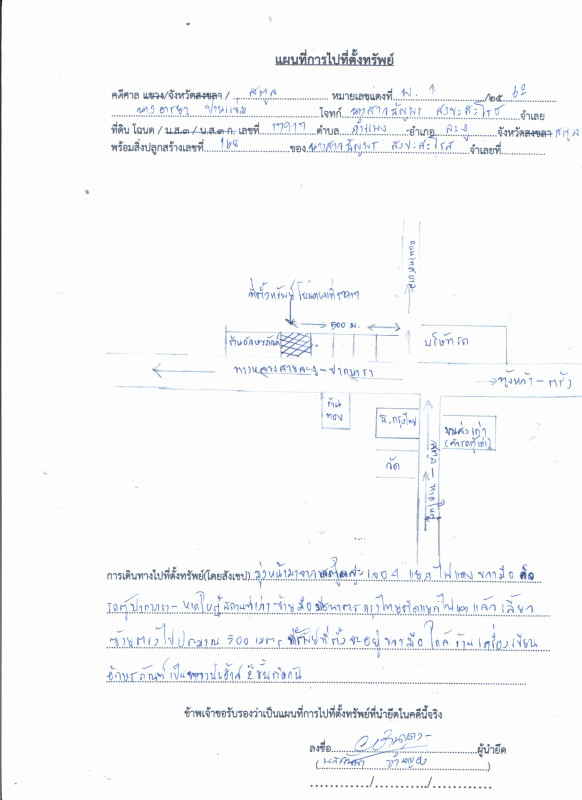 แผนที่การไปที่ตั้งทรัพย์
คดีศาล แขวง/จังหวัดสงขลา / สตูล หมายเลขแดงที่ พ. 1 /๒๕ 62
โจทก์ นางสาว สังขะสะโรช จำเลย
ที่ดิน โฉนด / น.ส.๓ / น.ส.๓ ก. เลขที่ 17917 ตำบล กำแพง อำเภอ ละงู จังหวัดสงขลา สตูล
พร้อมสิ่งปลูกสร้างเลขที่ 168 ของ นางสาว จำเลยที่
ถนนเทศบาล
ที่ตั้งทรัพย์ โฉนดเลขที่ 17917
500 ม.
ร้านอักษรภัณฑ์
บริษัทรถ
ทางหลวงสายละงู - ปากบารา
ทุ่งหว้า - ตรัง
ร้านทอง
ธ.กรุงไทย
ขนส่งเก่า
(คิวรถตู้เก่า)
วัด
สตูล - หาดใหญ่
การเดินทางไปที่ตั้งทรัพย์(โดยสังเขป) มุ่งหน้ามาจาก เจอ 4 แยกไฟแดง ขวามือ คือ
รถตู้ปากบารา - หาดใหญ่ เก่า ซ้ายมือ ธนาคารกรุงไทยติดแยกไฟแดง แล้วเลี้ยว
ซ้ายตรงไปประมาณ 500 เมตร ทรัพย์ที่ตั้งจะอยู่ขวามือ ใกล้ร้านเครื่องเขียน
อักษรภัณฑ์ เป็น ทาวน์เฮ้าส์ 2 ชั้น
ข้าพเจ้าขอรับรองว่าเป็นแผนที่การไปที่ตั้งทรัพย์ที่นำยึดในคดีนี้จริง
ลงชื่อ ผู้นำยึด